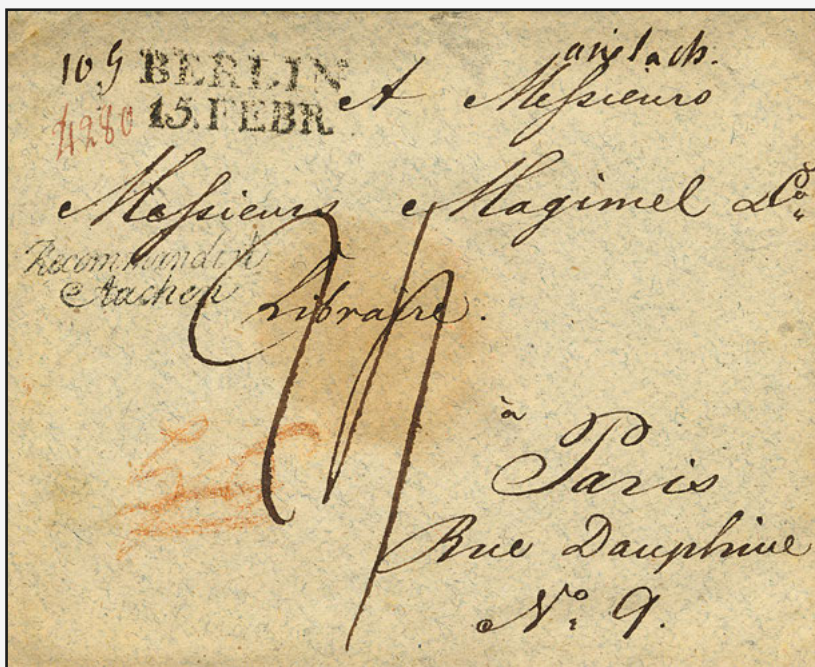 109 BERLIN
4280 15. FEBR.
A Messieurs
Messieurs Magimel & Co
Recommandirt
Aachen
Libraire.
à
Paris
Rue Dauphine
No 9.